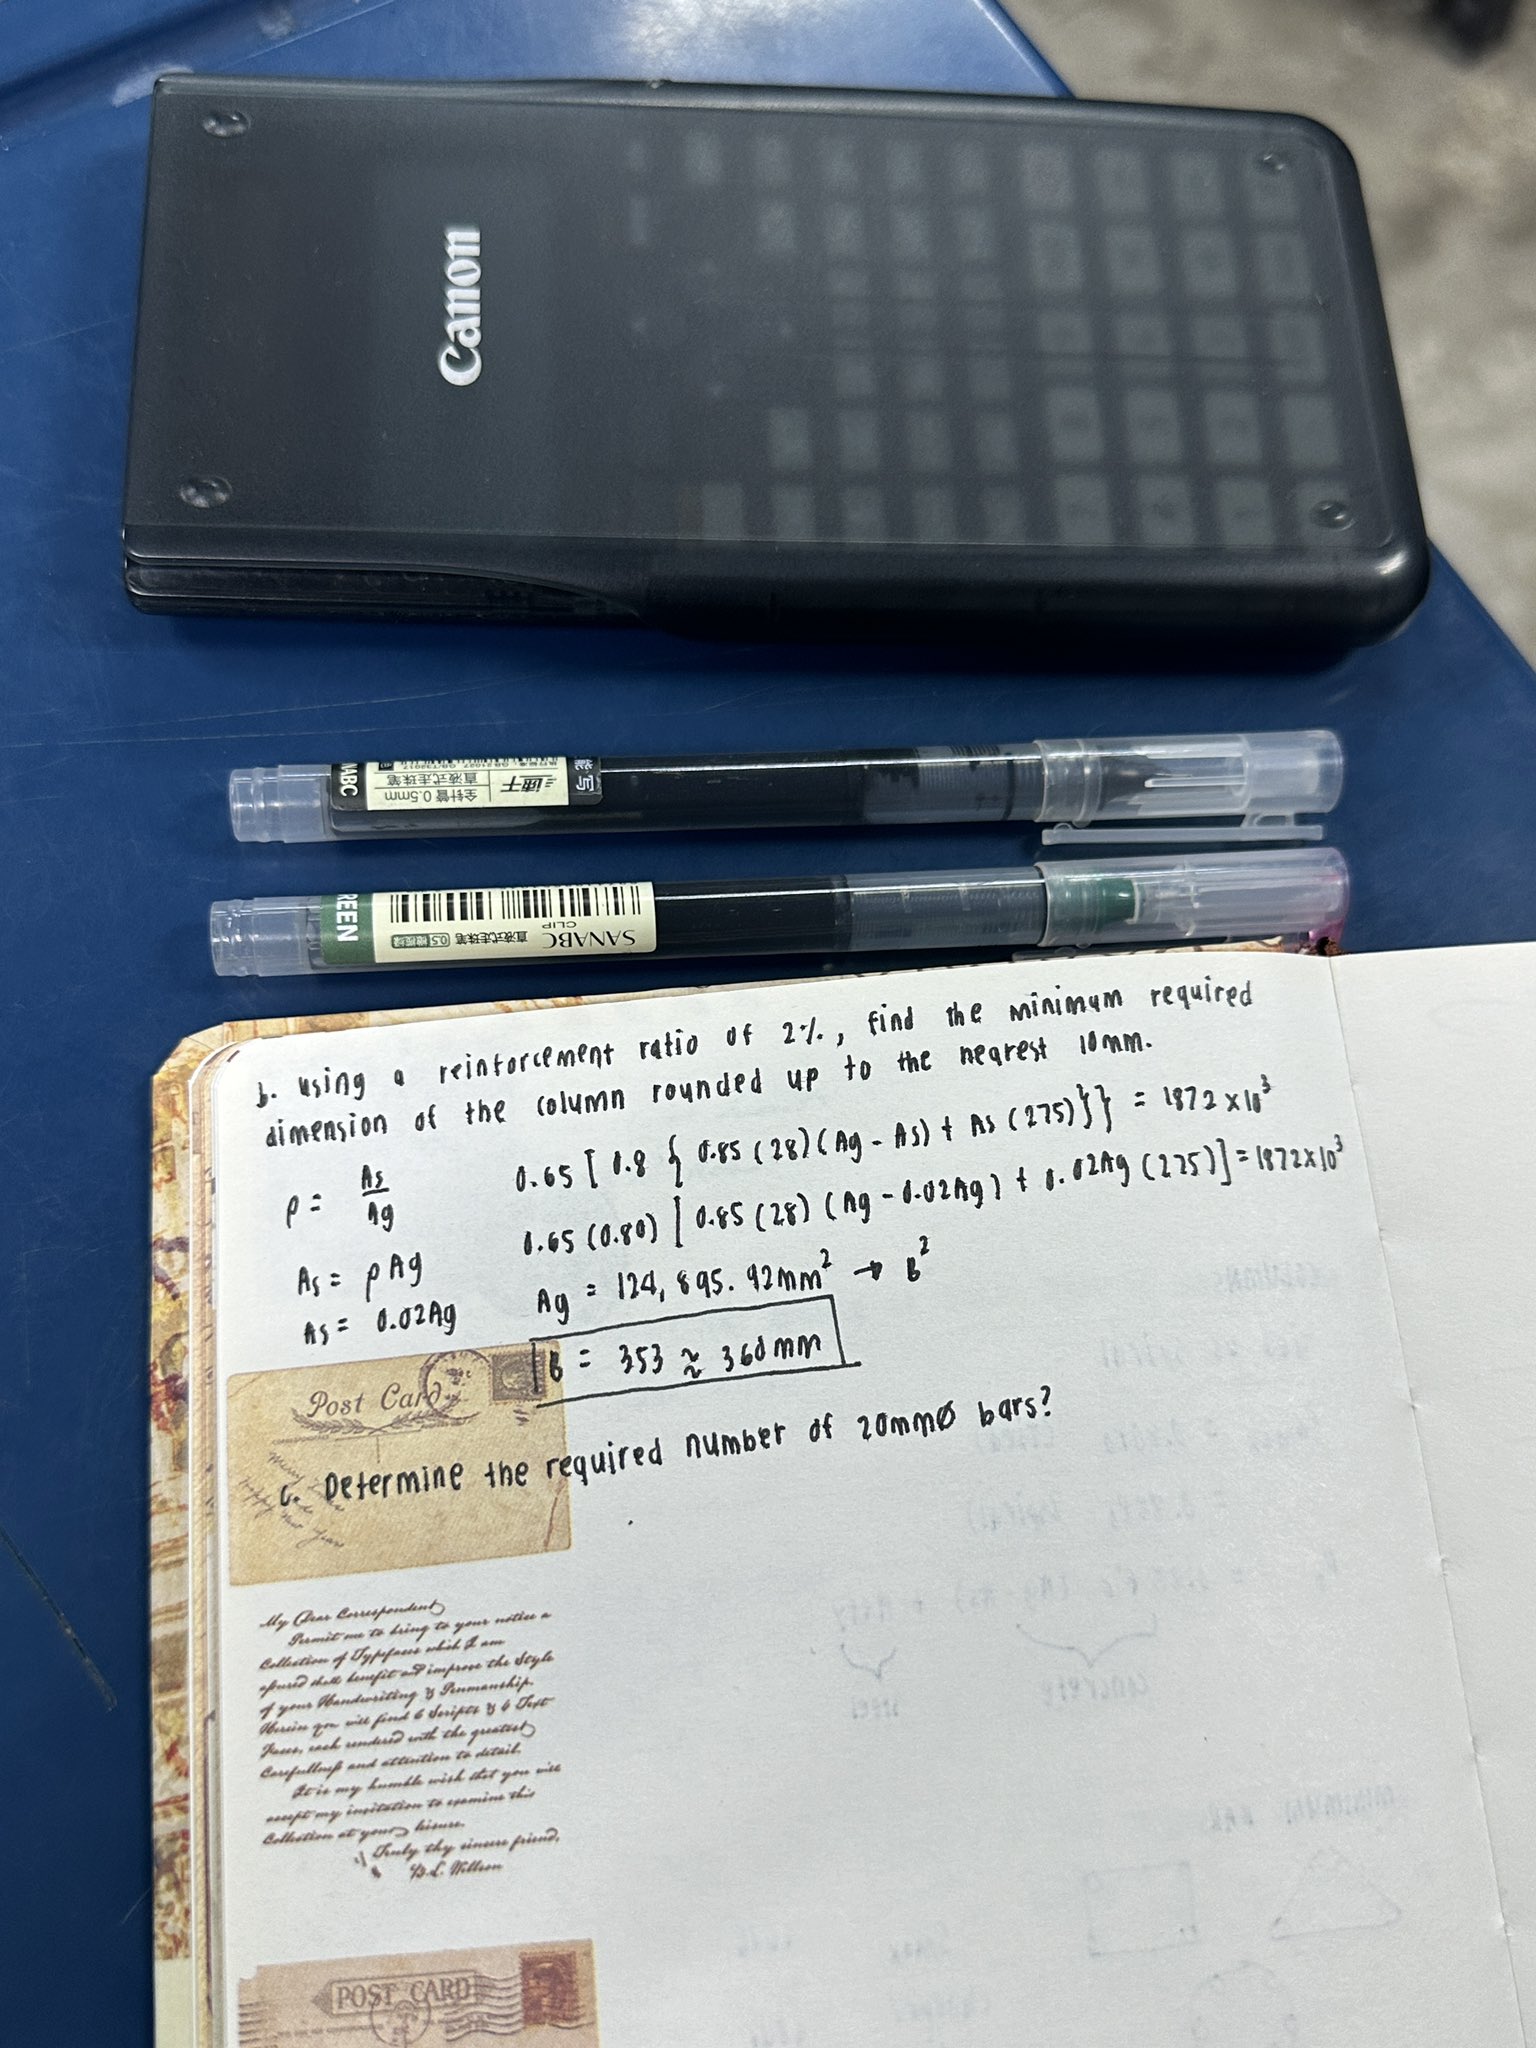 Canon
NABC
全针管 0.5mm
直液式走珠笔
速干
GREEN
SANABC
CLIP
直液式走珠笔
0.5
b. using a reinforcement ratio of 2%, find the minimum required
dimension of the column rounded up to the nearest 10mm.
ρ = As/Ag
As = ρAg
As = 0.02Ag
0.65 [ 0.8 { 0.85 (28) (Ag - As) + As (275) } } = 1872 x 10³
0.65 (0.80) [ 0.85 (28) (Ag - 0.02Ag) + 0.02Ag (275) ] = 1872x10³
Ag = 124,895.92mm² → B²
B = 353 ≈ 360mm
Post Card
c. Determine the required number of 20mmØ bars?
My Dear Correspondent
Permit me to bring to your notice a
Collection of Typefaces which I am
assured shall benefit and improve the Style
of your Handwriting & Penmanship.
Herein you will find 6 Scripts & 6 Text
Faces, each rendered with the greatest
Carefullness and attention to detail.
It is my humble wish that you will
accept my invitation to examine this
Collection at your leisure.
Truly thy sincere friend,
POST CARD